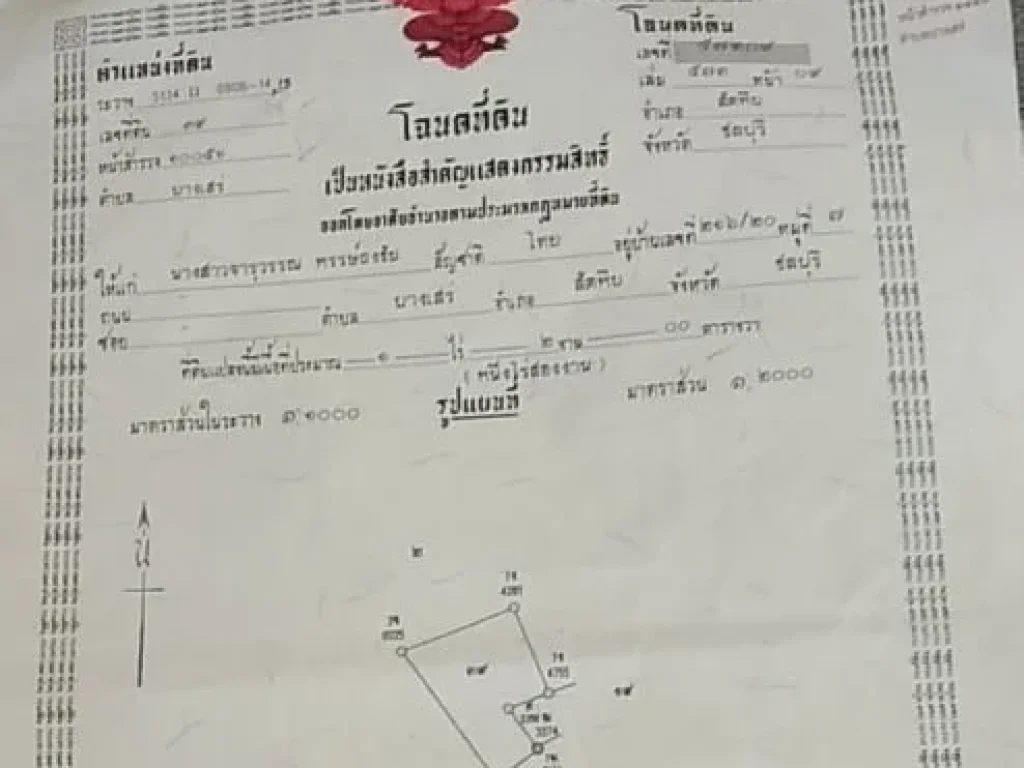 ตำแหน่งที่ดิน
ระวาง 5134 II
เลขที่ดิน ๓๙
หน้าสำรวจ
ตำบล บางเสร่
โฉนดที่ดิน
เลขที่
เล่ม ๕๗๓ หน้า ๐๙
อำเภอ สัตหีบ
จังหวัด ชลบุรี
โฉนดที่ดิน
เป็นหนังสือสำคัญแสดงกรรมสิทธิ์
ออกโดยอาศัยอำนาจตามประมวลกฎหมายที่ดิน
ให้แก่ นางสาวจารุวรรณ สัญชาติ ไทย อยู่บ้านเลขที่ ๒๑๖/๒๐ หมู่ที่ ๗
ถนน ตำบล บางเสร่ อำเภอ สัตหีบ จังหวัด ชลบุรี
ซอย
ที่ดินแปลงนี้มีเนื้อที่ประมาณ ๑ ไร่ ๒ งาน ๐๐ ตารางวา
(หนึ่งไร่สองงาน)
มาตราส่วนในระวาง ๑:๑๐๐๐
รูปแผนที่
มาตราส่วน ๑:๒๐๐๐
น
๒
7จ
4281
7จ
4755
๓๙
๑๙
3374